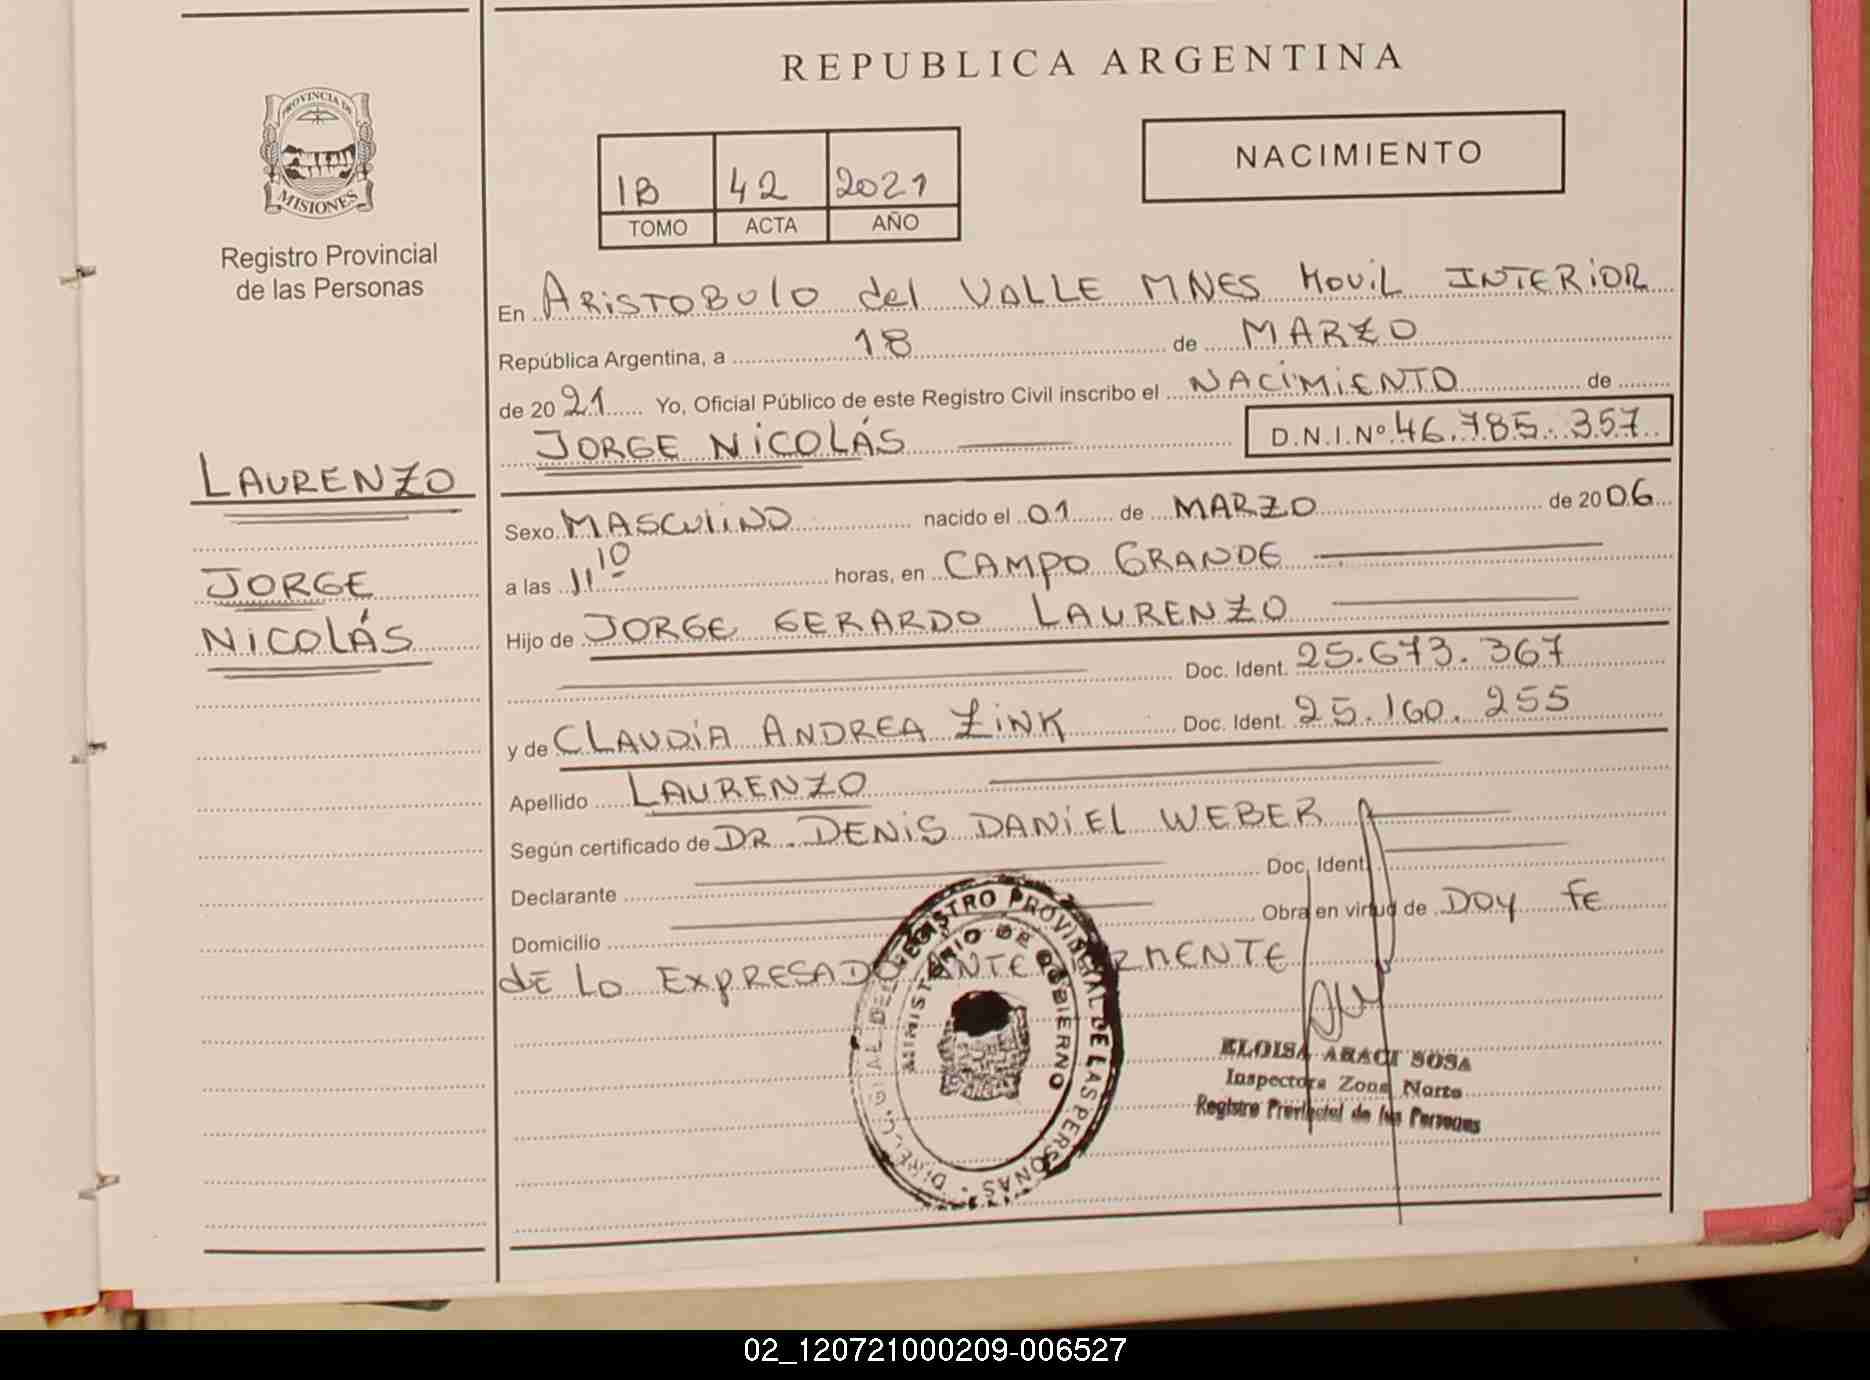 REPUBLICA ARGENTINA
PROVINCIA DE
MISIONES
Registro Provincial
de las Personas
1B 42 2021
TOMO ACTA AÑO
NACIMIENTO
En ARISTOBULO del VALLE MNES MOVIL INTERIOR
República Argentina, a 18 de MARZO
de 2021 Yo, Oficial Público de este Registro Civil inscribo el NACIMIENTO de
JORGE NICOLÁS D.N.I.Nº 46.785.357
LAURENZO
JORGE
NICOLÁS
Sexo MASCULINO nacido el 01 de MARZO de 2006
a las 11 10 horas, en CAMPO GRANDE
Hijo de JORGE GERARDO LAURENZO
Doc. Ident. 25.673.367
y de CLAUDIA ANDREA ZINK Doc. Ident. 25.160.255
Apellido LAURENZO
Según certificado de DR. DENIS DANIEL WEBER
Declarante Doc. Ident.
Domicilio Obra en virtud de DOY FE
DE LO EXPRESADO ANTERIORMENTE
REGISTRO PROVINCIAL DE LAS PERSONAS
MINISTERIO DE GOBIERNO
ELOISA ARACI SOSA
Inspectora Zona Norte
Registro Provincial de las Personas
02_120721000209-006527